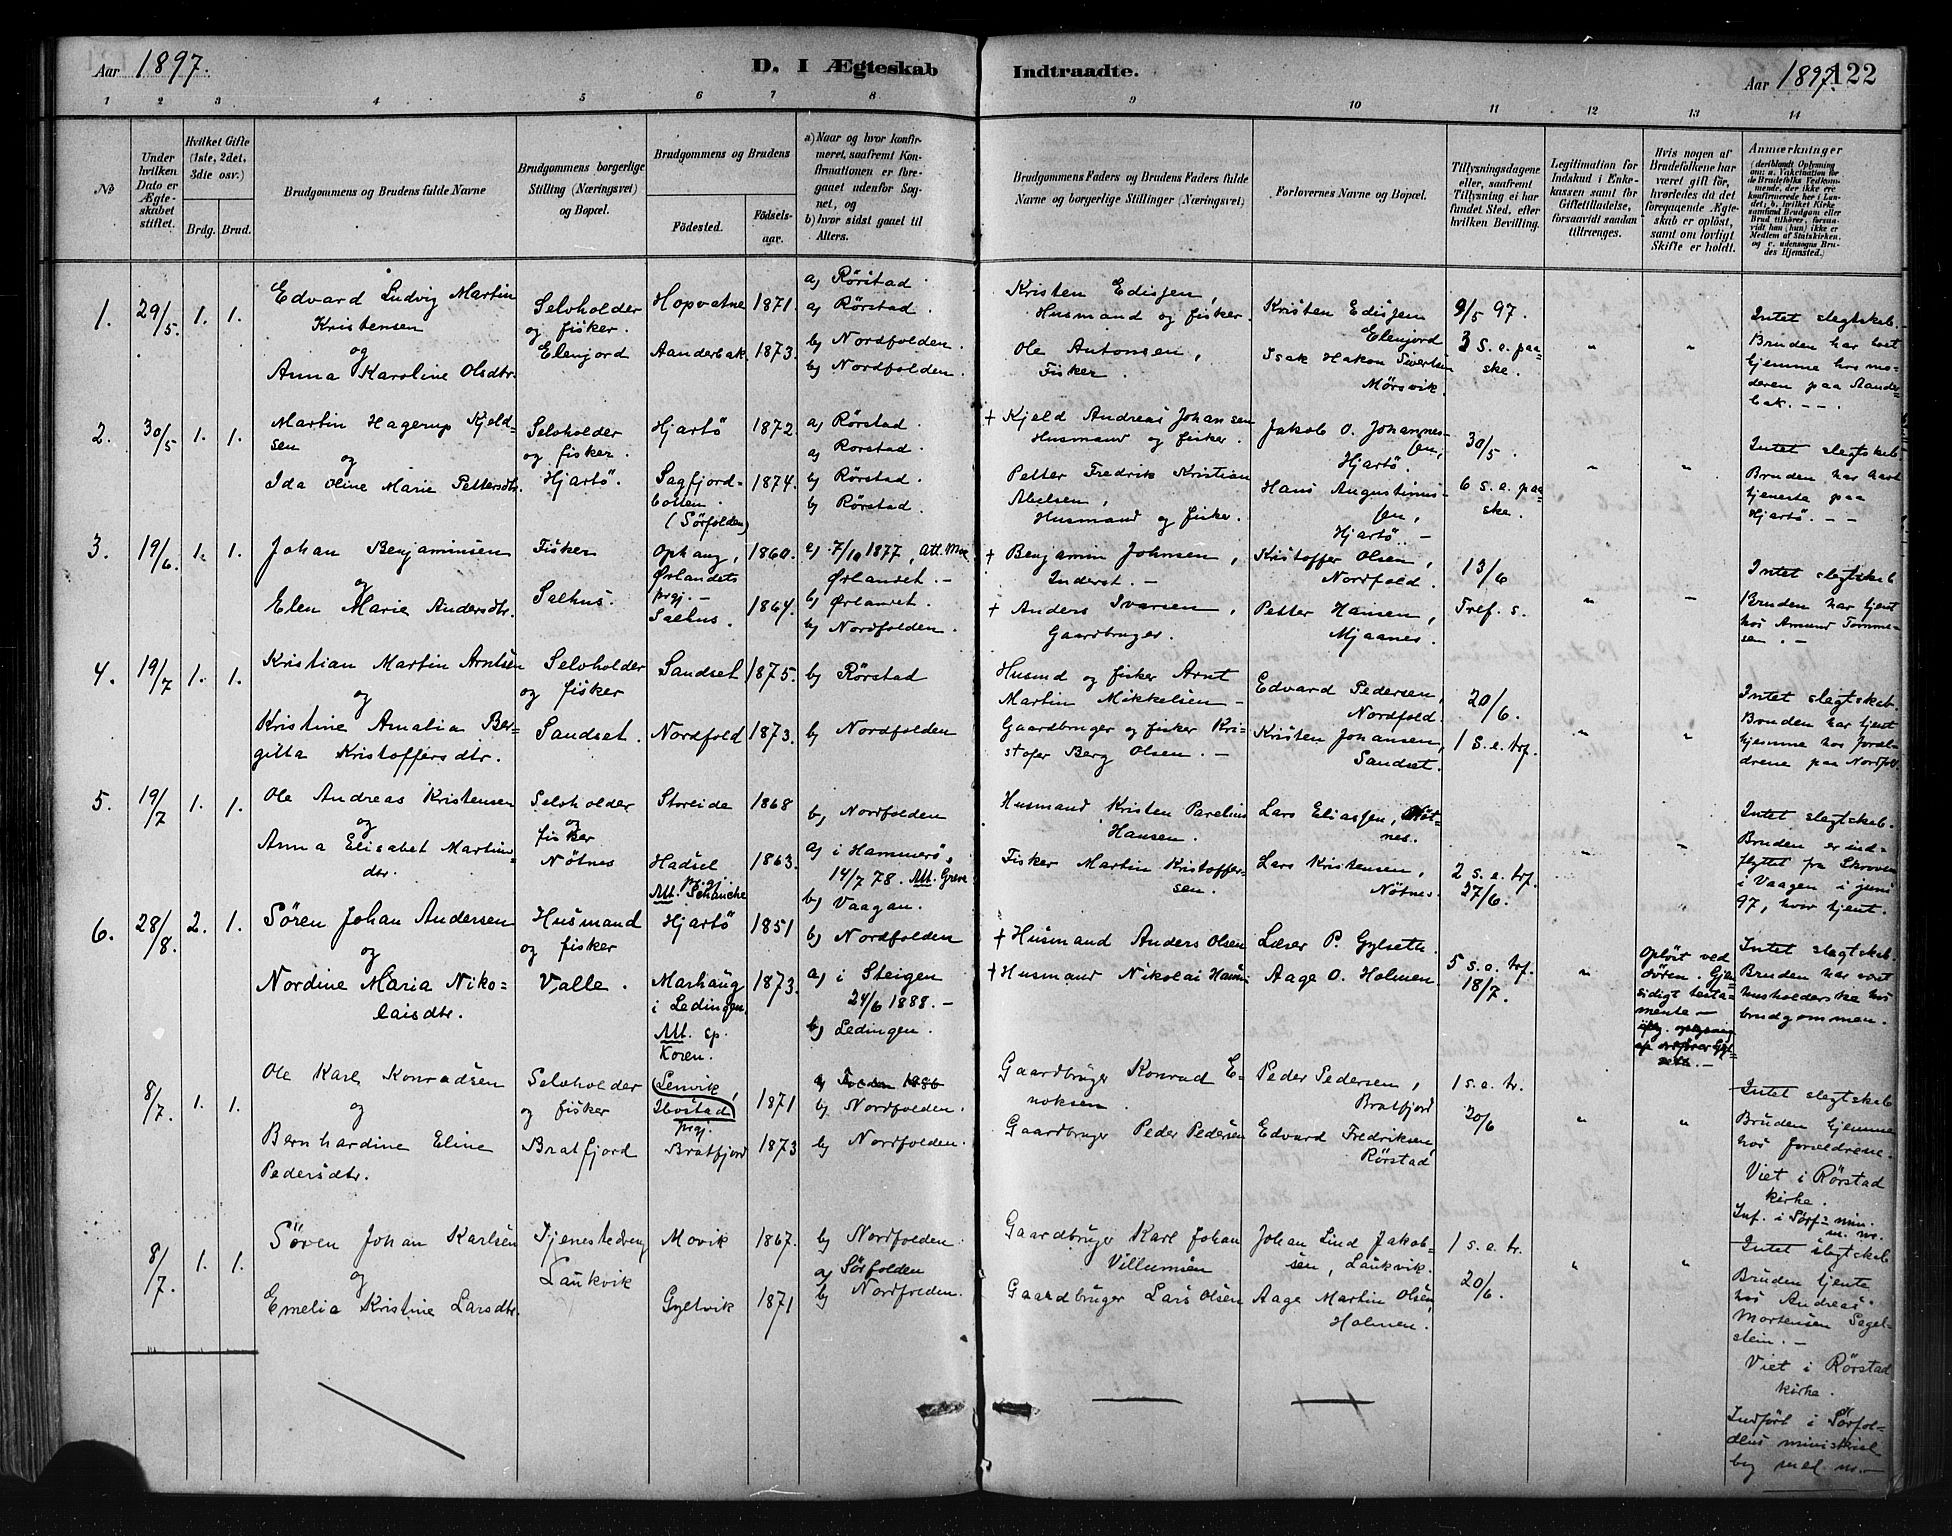 Aar 1897. D. I Ægteskab Indtraadte. Aar 1897. 122
1 2 3 4 5 6 7 8 9 10 11 12 13 14
№
Under hvilken Dato er Ægteskabet stiftet.
Hvilket Gifte (1ste, 2det, 3die osv.)
Brdg. Brud.
Brudgommens og Brudens fulde Navne
Brudgommens borgerlige Stilling (Næringsvei) og Bopæl.
Brudgommens og Brudens
Fødested. Fødselsaar.
a) Naar og hvor konfirmeret, saafremt Konfirmationen er foregaaet udenfor Sognet, og
b) hvor sidst gaaet til Alters.
Brudgommens Faders og Brudens Faders fulde Navne og borgerlige Stillinger (Næringsvei)
Forlovernes Navne og Bopæl.
Tillysningsdagene eller, saafremt Tillysning ei har fundet Sted, efter hvilken Bevilling.
Legitimation for Indskud i Enkekassen samt for Giftetilladelse, forsaavidt saadan tiltrænges.
Hvis nogen af Brudefolkene har været gift før, hvorledes da det foregaaende Ægteskab er opløst, samt om lovligt Skifte er holdt.
Anmærkninger
(deriblandt Oplysning om: a. Vaksination for de Brudefolks Vedkommende, der ikke ere konfirmerede her i Landet; b. hvilket Kirkesamfund Brudgom eller Brud tilhører, forsaavidt han (hun) ikke er Medlem af Statskirken, og c. udensogns Brudes Hjemsted.)
1. 29/5. 1. 1.
Edvard Ludvig Martin
Kristensen
og
Anna Karoline Olsdtr.
Selvholder
og fisker.
Elenjord
Hopvatne 1871.
Aanderbak 1873.
a) Rørstad.
a) Rørstad.
b) Nordfolden.
b) Nordfolden.
Kristen Edisjen,
Husmand og fisker.
Ole Antonsen,
Fisker.
Kristen Edisjen
Elenjord
Isak Hakon Sivertsen
Mørsvik.
9/5 97.
3 s. e. paaske.
" "
Intet slegtskab.
Bruden har havt
hjemme hos moderen
paa Aanderbak. - -
2. 30/5 1. 1.
Martin Hagerup Kjeldsen
og
Ida Oline Marie Pettersdtr.
Selvholder
og fisker.
Hjartø.
Hjartø 1872
Sagfjordbotten
(Sørfolden) 1874.
a) Rørstad.
a) Rørstad.
b) Rørstad.
b) Rørstad.
+ Kjeld Andreas Johansen
Husmand og fisker.
Petter Fredrik Kristian
Abelsen,
Husmand og fisker.
Jakob O. Johannessen,
Hjartø.
Hans Augustinussen,
Hjartø. -
30/5.
6 s. e. paaske.
" "
Intet slegtskab.
Bruden har havt
tjeneste paa
Hjartø. - -
3. 19/6 1. 1.
Johan Benjaminsen
og
Elen Marie Andersdtr.
Fisker
Salhus.
Ophaug,
Ørlandets
prgj. - 1860.
Salhus. 1864.
a) 7/10 1877, Att. Moe
Ørlandet. -
b) Ørlandet.
b) Nordfolden.
+ Benjamin Johnsen,
Inderst. -
+ Anders Ivarsen,
Gaardbruger.
Kristoffer Olsen,
Nordfold.
Petter Hansen,
Mjaanes.
13/6
Tref. s.
" -
Intet slegtskab
Bruden har tjent
hos Amund Tommesen. -
4. 19/7 1. 1.
Kristian Martin Arntsen
og
Kristine Amalia Bergitta
Kristoffersdtr.
Selvholder
og fisker
Sandset.
Sandset 1875.
Nordfold 1873.
b) Rørstad
b) Nordfolden
Husmd og fisker Arnt
Martin Mikkelsen -
Gaardbruger og fisker Kristofer
Berg Olsen. -
Edvard Pedersen,
Nordfold.
Kristen Johansen,
Sandset.
20/6.
1 s. e. tref.
" "
Intet slegtskab.
Bruden har tjent
hjemme hos forældrene
paa Nordfold.
5. 19/7 1. 1.
Ole Andreas Kristensen
og
Anna Elisabet Martinsdtr.
Selvholder
og
fisker
Nøtnes
Storeide 1868
Hadsel
prgj. 1863.
Att. Schanche
b) Nordfolden
a) i Hammerø,
14/7 78. Att. Greve
b) Vaagan.
Husmand Kristen Parelius
Hansen.
Fisker Martin Kristoffersen.
Lars Eliassen, Nøtnes.
Lars Kristensen,
Nøtnes.
2 s. e. tref.
27/6.
" "
Intet slegtskab.
Bruden er indflyttet
fra Skroven
i Vaagen i juni
97, hvor tjent.
6. 28/8. 2. 1.
Søren Johan Andersen
og
Nordine Maria Nikolaisdtr.
Husmand
og fisker
Valle.
Hjartø 1851
Marhaug
i Lødingen 1873.
Att. sp.
Koren.
b) Nordfolden
a) i Steigen
24/6 1888. -
b) Lødingen.
+ Husmand Anders Olsen
+ Husmand Nikolai Hansen
Læser P. Gylseth.
Aage O. Holmen
5 s. e. tref.
18/7.
"
Opløst ved
døden. Gjensidigt
testamente -
Intet slegtskab.
Bruden har vært
husholderske hos
brudgommen.
8/7. 1. 1.
Ole Karl Konradsen
og
Bernhardine Eline
Pedersdtr.
Selvholder
og fisker
Bratfjord
Lenvik,
Ibestad
prgj. 1871
Bratfjord 1873
b) Nordfolden.
b) Nordfolden.
Gaardbruger Konrad Enoksen.
Gaardbruger Peder Pedersen
Peder Pedersen,
Bratfjord
Edvard Fredriksen,
Rørstad
1 s. e. tr.
20/6
" "
Intet slegtskab
Bruden hjemme
hos forældrene.
Viet i Rørstad
kirke.
Inf. i Sørf. min.
m. no.
8/7. 1. 1.
Søren Johan Karlsen
og
Emelia Kristine Larsdtr.
Tjenestedreng
Laukvik
Movik 1867.
Gyltvik 1871
b) Nordfolden.
a) Sørfolden
b) Nordfolden.
Gaardbruger Karl Johan
Villumsen
Gaardbruger Lars Olsen
Johan Lind Jakobsen,
Laukvik.
Aage Martin Olsen,
Holmen.
1 s. e. tr.
20/6.
" "
Intet slegtskab
Bruden tjente
hos Andreas
Mortensen Sagelstein. -
Viet i Rørstad
kirke.
Indført i Sørfoldens
ministeriel
bog med no. -